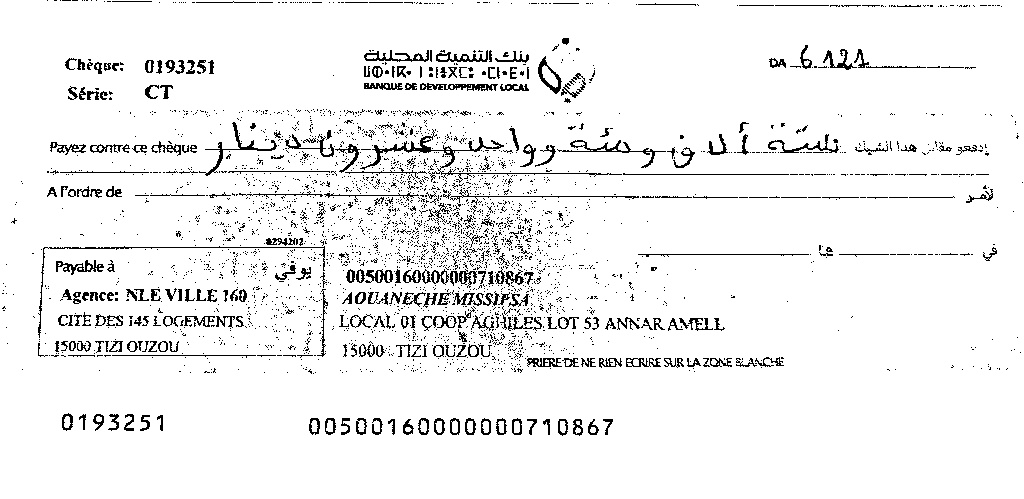 Chèque: 0193251
Série: CT
بنك التنمية المحلية
BANQUE DE DEVELOPPEMENT LOCAL
DA 6.121
Payez contre ce chèque ستة ألاف ومئة وواحد وعشرون دينار إدفعو مقابل هذا الشيك
A l'ordre de لأمر
في
8294202
Payable à يوفي
Agence: NLE VILLE 160
CITE DES 145 LOGEMENTS
15000 TIZI OUZOU
00500160000000710867
AOUANECHE MISSIPSA
LOCAL 01 COOP AGHILES LOT 53 ANNAR AMELL
15000 TIZI OUZOU
PRIERE DE NE RIEN ECRIRE SUR LA ZONE BLANCHE
0193251 00500160000000710867